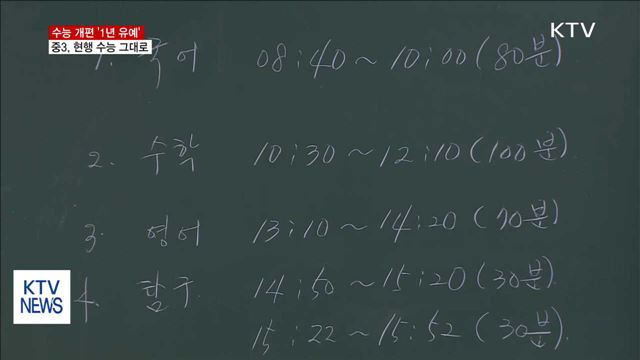 수능 개편 '1년 유예'
중3, 현행 수능 그대로
KTV
1. 국어 08:40~10:00(80분)
2. 수학 10:30~12:10(100분)
3. 영어 13:10~14:20(70분)
4. 탐구 14:50~15:20(30분)
15:22~15:52(30분)
KTV
NEWS